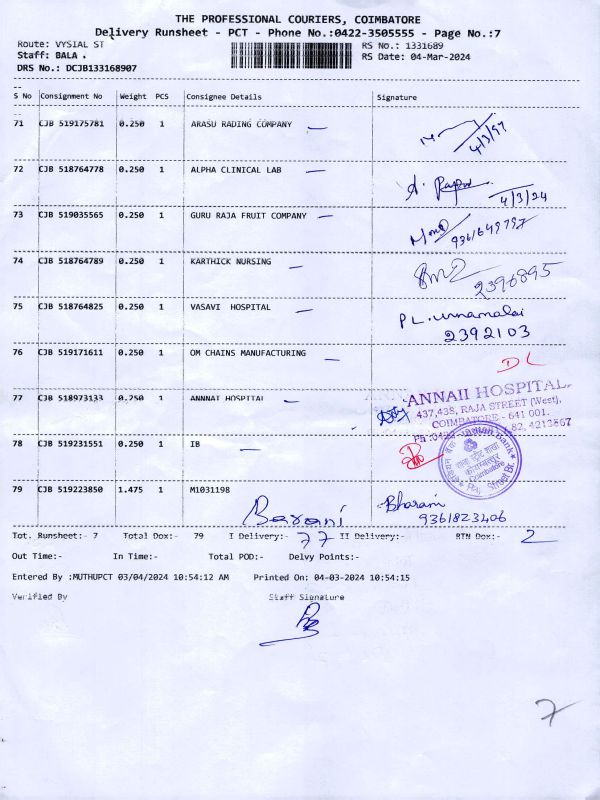 THE PROFESSIONAL COURIERS, COIMBATORE
Delivery Runsheet - PCT - Phone No.:0422-3505555 - Page No.:7
Route: VYSIAL ST RS No.: 1331689
Staff: BALA . RS Date: 04-Mar-2024
DRS No.: DCJB133168907
S No Consignment No Weight PCS Consignee Details Signature
71 CJB 519175781 0.250 1 ARASU RADING COMPANY 4/3/97
72 CJB 518764778 0.250 1 ALPHA CLINICAL LAB 4/3/24
73 CJB 519035565 0.250 1 GURU RAJA FRUIT COMPANY 9361649797
74 CJB 518764789 0.250 1 KARTHICK NURSING 2396895
75 CJB 518764825 0.250 1 VASAVI HOSPITAL PL. unnamalai
2392103
76 CJB 519171611 0.250 1 OM CHAINS MANUFACTURING DL
77 CJB 518973133 0.250 1 ANNNAT HOSPITAL ANNAII HOSPITAL,
437,438, RAJA STREET (West),
COIMBATORE - 641 001.
Ph :0422 82, 4213867
78 CJB 519231551 0.250 1 IB
Indian Bank
Coimbatore
Raj Street Br.
79 CJB 519223850 1.475 1 M1031198 Barani Bharani
9361823406
Tot. Runsheet:- 7 Total Dox:- 79 I Delivery:- 77 II Delivery:- RTN Dox:- 2
Out Time:- In Time:- Total POD:- Delvy Points:-
Entered By :MUTHUPCT 03/04/2024 10:54:12 AM Printed On: 04-03-2024 10:54:15
Verified By Staff Signature
7